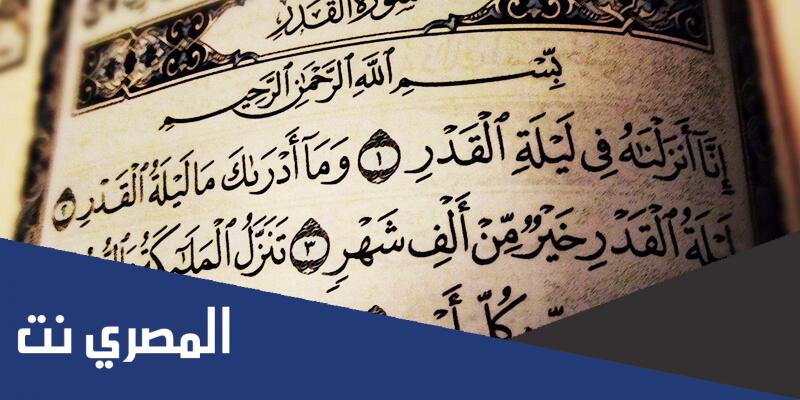 سورة القدر
بِسْمِ ٱللَّهِ ٱلرَّحْمَٰنِ ٱلرَّحِيمِ
إِنَّآ أَنزَلْنَٰهُ فِى لَيْلَةِ ٱلْقَدْرِ ١ وَمَآ أَدْرَىٰكَ مَا لَيْلَةُ ٱلْقَدْرِ ٢
لَيْلَةُ ٱلْقَدْرِ خَيْرٌ مِّنْ أَلْفِ شَهْرٍ ٣ تَنَزَّلُ ٱلْمَلَٰٓئِكَةُ
كُلِّ
المصري نت